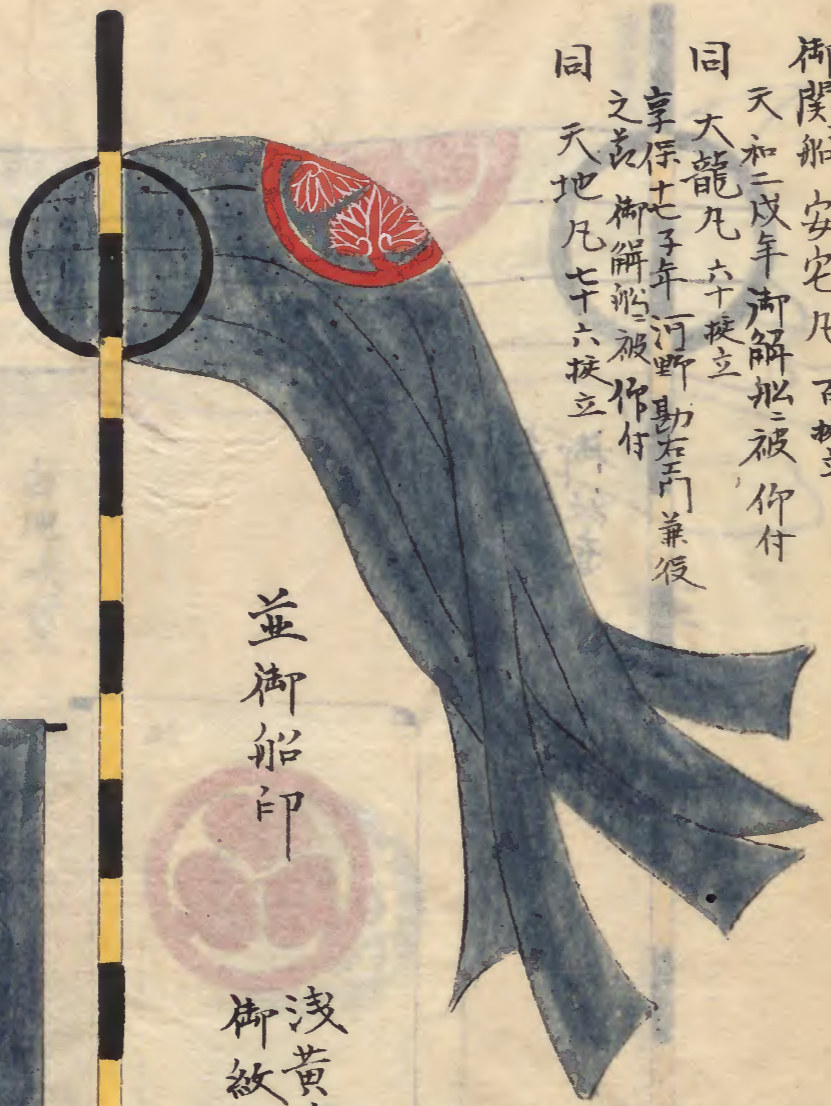 御関船 安宅丸 百挺立
天和二戌年御解船ニ被 仰付
同 大龍丸 六十挺立
享保十七子年河野勘右衛門兼役
之節 御解船ニ被 仰付
同 天地丸 七十六挺立
並御船印
浅黄
御紋